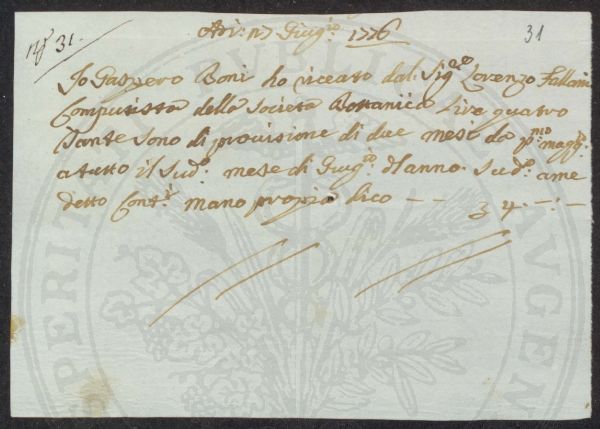 N.º 31.
31
Adi: 17 Giug.º 1776
Io Gaspero Boni ho riceuto dal Sig.re Lorenzo Fallani
Computista della Societa Bottanica Lire quatro
Tante sono di provisione di due mese da p.mo magg.º
a tutto il Sud.º mese di Giug.º d'lanno Sud.º a me
detto Cont.i mano propia dico — — £ 4. — : —
PERITA
PUBLI
AUGEN